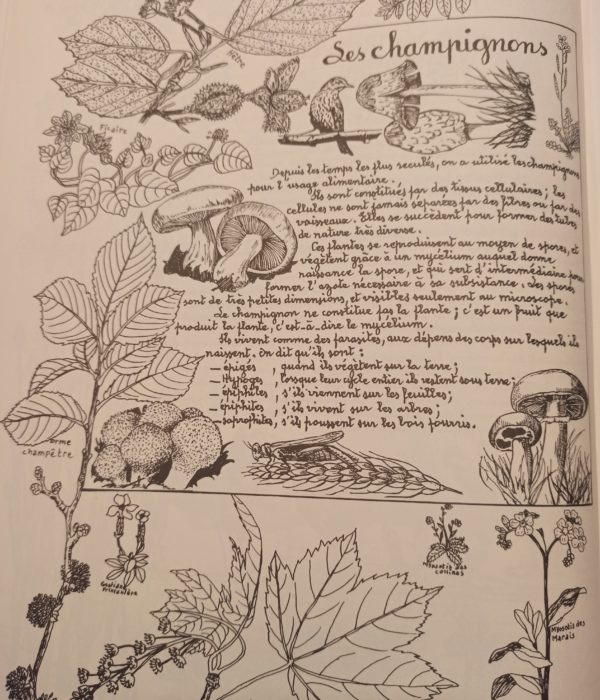 Les champignons
Hêtre
Ficaire
Depuis les temps les plus reculés, on a utilisé les champignons
pour l'usage alimentaire.
Ils sont constitués par des tissus cellulaires ; les
cellules ne sont jamais séparées par des fibres ou par des
vaisseaux. Elles se succèdent pour former des tubes
de nature très diverse.
Ces plantes se reproduisent au moyen de spores, et
végètent grâce à un mycelium auquel donne
naissance la spore, et qui sert d'intermédiaire pour
former l'azote nécessaire à sa subsistance. Les spores
sont de très petites dimensions, et visibles seulement au microscope.
Le champignon ne constitue pas la plante ; c'est un fruit que
produit la plante, c'est-à-dire le mycélium.
Ils vivent comme des parasites, aux dépens des corps sur lesquels ils
naissent. On dit qu'ils sont :
_ épigés , quand ils végètent sur la terre ;
_ Hypogés , lorsque leur cycle entier ils restent sous terre ;
_ épiphites , s'ils viennent sur les feuilles ;
_ épiphites , s'ils vivent sur les arbres ;
_ soprophites, s'ils poussent sur les bois pourris.
orme
champêtre
Myosotis des
collines
Myosotis des
Marais